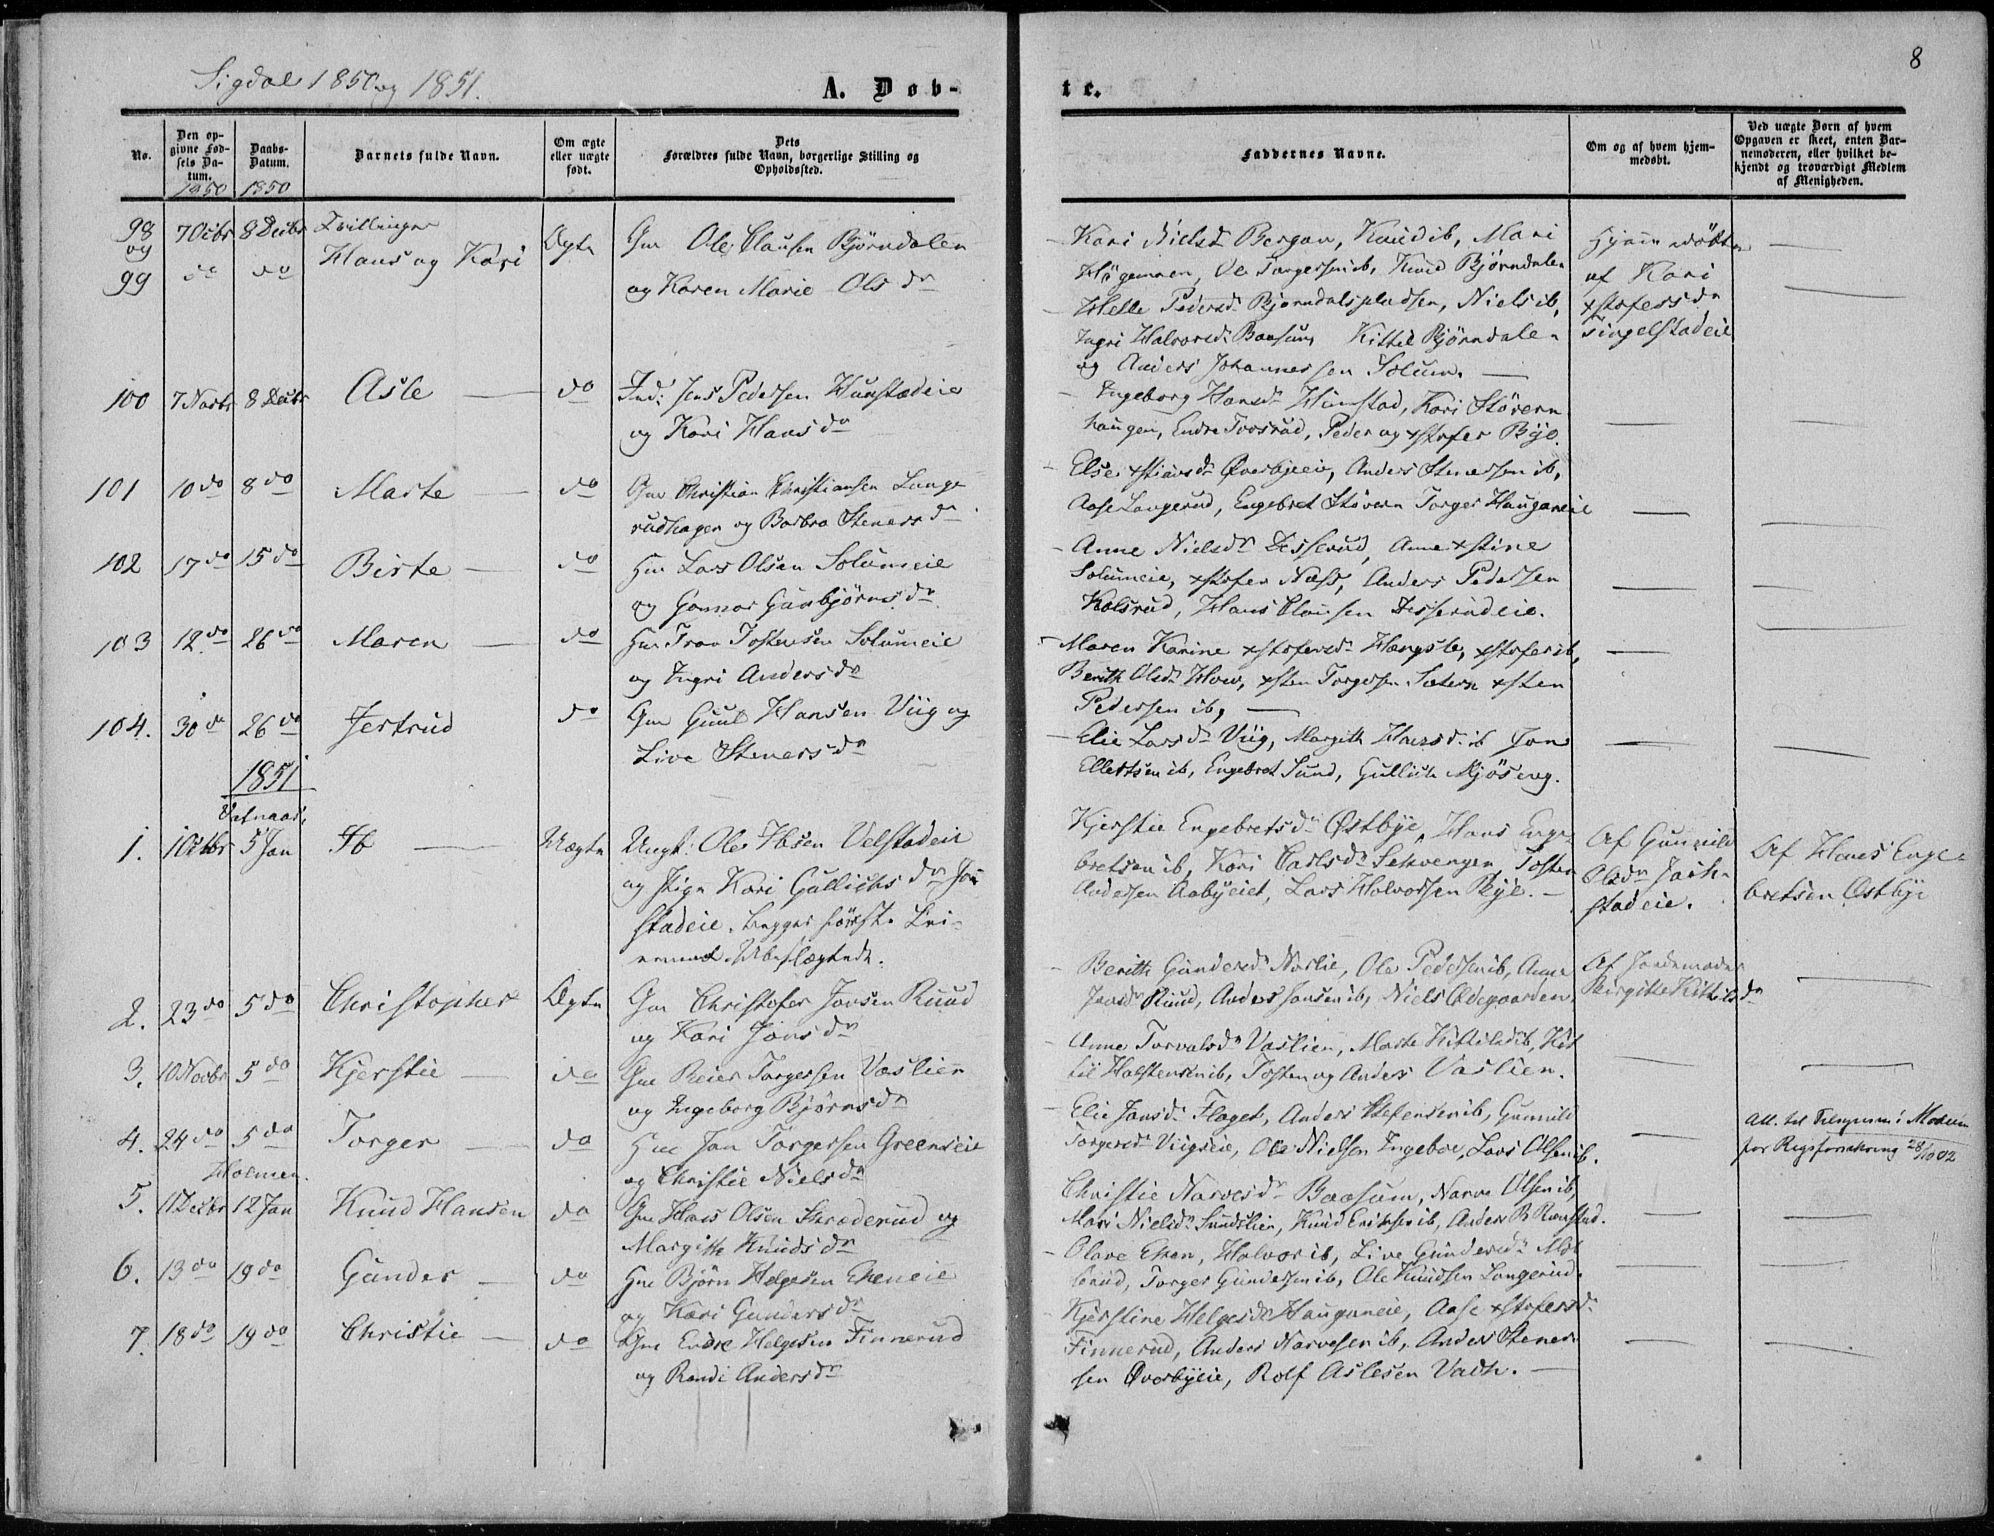 Sigdal 1850 og 1851.
A. Døb-
te.
8
No.
Den op-
givne Fød-
sels Da-
tum.
1850
Daabs-
Datum.
1850
Barnets fulde Navn.
Om ægte
eller uægte
født.
Dets
Forældres fulde Navn, borgerlige Stilling og
Opholdssted.
Faddernes Navne.
Om og af hvem hjem-
medøbt.
Ved uægte Børn af hvem
Opgaven er skeet, enten Bar-
nemoderen, eller hvilket be-
kjendt og troværdigt Medlem
af Menigheden.
98 og 99
7 Decbr 8 Decbr
do do
Tvillinger
Hans og Kari
Ægte
Gm Ole Clausen Bjørndalen
og Karen Marie Ols dr
Kari Nielsd. Bergan, Knud ib, Mari
Ole Torgersen ib, Knud Bjørndalen
Helle Pedersd. Bjørndalspladsen, Niels ib,
Ingri Halvorsd. Baasum, Kittil Bjørndalen
og Anders Johannessen Solum.
Hjemmedøbte
af Kari
xstofersdr
100 7 Novbr 8 Decbr Asle do
Ind: Jens Pedersen Hunstadeie
og Kari Hans dr
Ingeborg Hansd. Hunstad, Kari Støvern
haugen, Endre Tovsrud, Peder og xstofer Bye.
101 10 do 8 do Marte do
Gm Christian Christiansen Lange
rudhagen og Barbra Steners dr
Else xstiansd. Øverbyeie, Anders Stenersen ib,
Aase Langerud, Engebret Støvern Torger Hauganeie
102 17 do 15 do Birte do
Hm Lars Olsen Solumeie
og Gunnor Gunbjørns dr
Anne Nielsdr Disserud, Anne xstine
Solumeie, xstofer Næss, Anders Pedersen
Kolsrud, Hans Clausen Disserudeie.
103 12 do 26 do Maren do
Hm Tron Tostensen Solumeie
og Ingri Anders dr
Maren Karine xstofersd. Hængsle, xstofer ib,
Berith Olsd. Hove, xsten Torgersen Sætern xsten
Pedersen ib,
104. 30 do 26 do Jertrud do
Gm Guul Hansen Viig og
Live Steners dr
Elie Larsd. Viig, Margith Hansd. ib Jon
Ellertsen ib, Engebret Sund, Gullich Mjøseng.
1851
Vatnaas,
1. 1 Octbr 5 Jan Ib Uægte
Ungk: Ole Ibsen Velstadeie
og Pige Kari Gullichs dr
stadeie. Begges første Lei-
ermaal. Ubeslægtede.
Kjerstie Engebretsdr Østbye, Hans Enge
bretsen ib, Kari Carlsdr Tosten
Andersen Aabyeiet, Lars Halvorsen Bye.
Af Gunhild
Olsdr
stadeie.
Af Hans Enge-
bretsen Østbye
2. 23 do 5 do Christopher Ægte
Gm Christofer Jonsen Ruud
og Kari Jons dr
Berith Gundersd. Norlie, Ole Pedersen ib, Anne
Jonsdr Ruud, Anders Jonsen ib, Niels Ødegaarden
Af Jordemoder
Birgitte Kittilsdr
3. 10 Novbr 5 do Kjerstie do
Gm Reier Torgersen Vaslien
og Ingeborg Bjørns dr
Anne Torvalsdr Vaslien, Marte Kittilsd. ib, Kit
til Halstensen ib, Tosten og Anders Vaslien.
4. 24 do 5 do Torger do
Hm Jan Torgersen Greeneeie
og Christie Niels dr
Elie Jansd. Flaget, Anders Stefensen ib, Gunnild
Torgersd. Viigseie, Ole Nielsen Ingeboe, Lars Olsen ib.
Att. til Modum
28/10 02
Holmen.
5. 1 Decbr 12 Jan Knud Hansen do
Gm Hans Olsen Skræderud og
Margitte Knuds dr
Christie Narvesdr Baasum, Narve Olsen ib,
Mari Nielsdr Sundslien, Knud Eriksen ib, Anders B
6. 13 do 19 do Gunder do
Hm Bjørn Helgesen Ekeneie
og Kari Gunders dr
Olave Eken, Halvor ib, Live Gundersdr Mol
berud, Torger Gundersen ib, Ole Knudsen Langerud.
7. 18 do 19 do Christie do
Gm Endre Helgesen Finnerud
og Randi Anders dr
Kjerstine Helgesdr Hauganeie, Aase xstofersdr
Finnerud, Anders Narvesen ib, Anders Stener-
sen Øverbyeie, Rolf Aslesen Vadh.